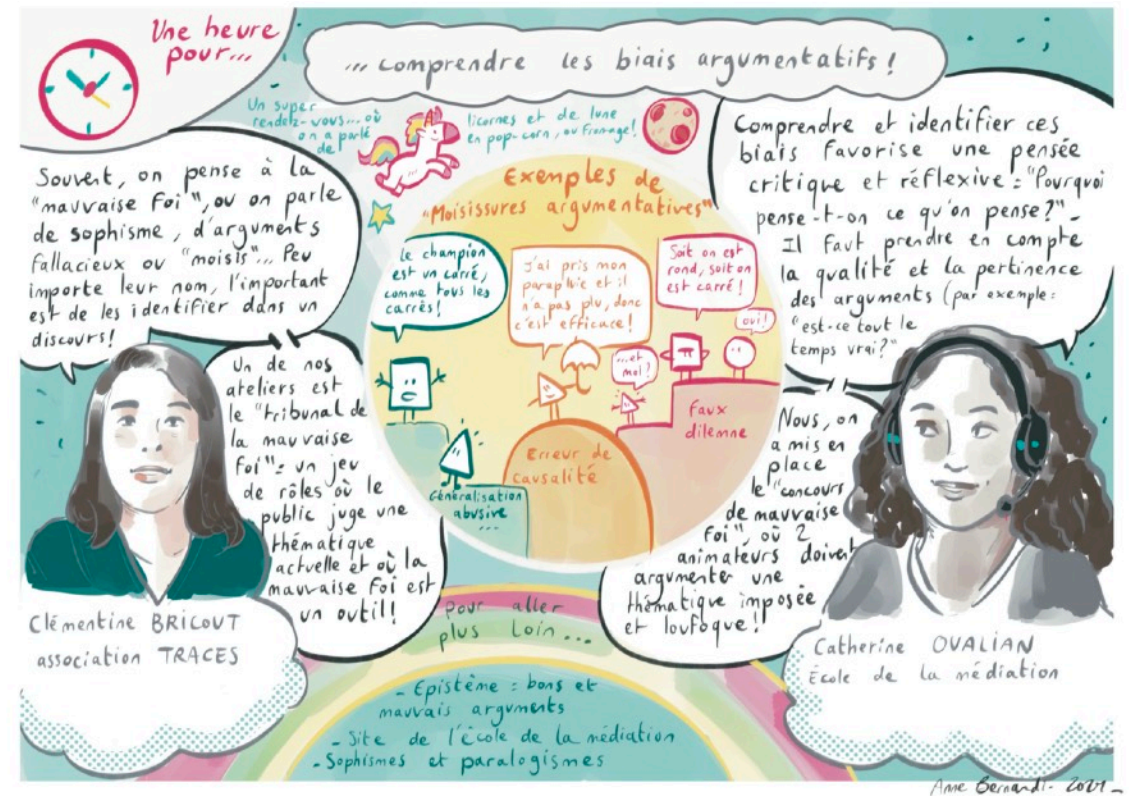 Une heure
pour...
... comprendre les biais argumentatifs !
Un super
rendez-vous... où
on a parlé
de
licornes et de lune
en pop-corn, ou fromage!
Souvent, on pense à la
"mauvaise foi", ou on parle
de sophisme, d'arguments
fallacieux ou "moisis"... Peu
importe leur nom, l'important
est de les identifier dans un
discours!
Un de nos
ateliers est
le "tribunal de
la mauvaise
foi": un jeu
de rôles où le
public juge une
thématique
actuelle et où la
mauvaise foi est
un outil!
Clémentine BRICOUT
association TRACES
Exemples de
"Moisissures argumentatives"
Le champion
est un carré,
comme tous les
carrés!
J'ai pris mon
parapluie et il
n'a pas plu, donc
c'est efficace!
Soit on est
rond, soit on
est carré!
oui!
...et
moi?
Généralisation
abusive
...
Erreur de
causalité
Faux
dilemne
Comprendre et identifier ces
biais favorise une pensée
critique et réflexive : "Pourquoi
pense-t-on ce qu'on pense?" -
Il faut prendre en compte
la qualité et la pertinence
des arguments (par exemple:
"est-ce tout le
temps vrai?"
Nous, on
a mis en
place
le "concours
de mauvaise
foi", où 2
animateurs doivent
argumenter une
thématique imposée
et loufoque!
Catherine OUALIAN
École de la médiation
pour aller
plus loin...
- Epistème : bons et
mauvais arguments
- Site de l'école de la médiation
- Sophismes et paralogismes
Anne Bernardi - 2021 -